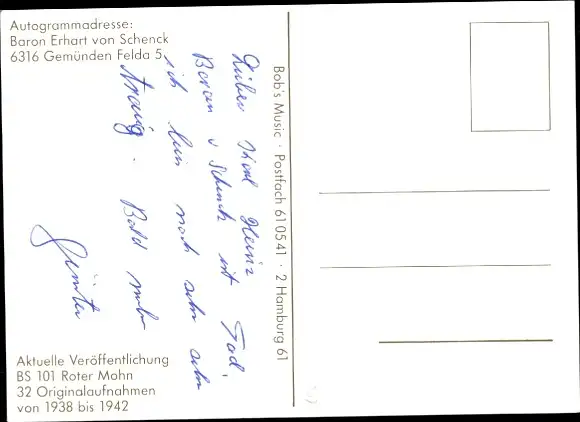 Autogrammadresse:
Baron Erhart von Schenck
6316 Gemünden Felda 5
Lieber Karl Heinz
Baron v Schenck ist Tod,
ich bin noch sehr sehr
traurig. Bald mehr
Günter
Aktuelle Veröffentlichung
BS 101 Roter Mohn
32 Originalaufnahmen
von 1938 bis 1942
Bob's Music · Postfach 610541 · 2 Hamburg 61